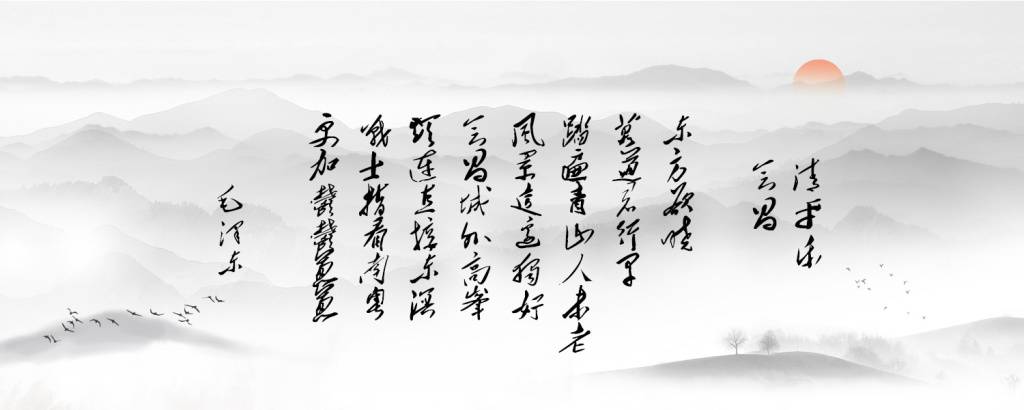 清平乐
会昌
东方欲晓
莫道君行早
踏遍青山人未老
風景這边獨好
会昌城外高峯
顛連直接东溟
戰士指看南粤
更加鬱鬱葱葱
毛泽东